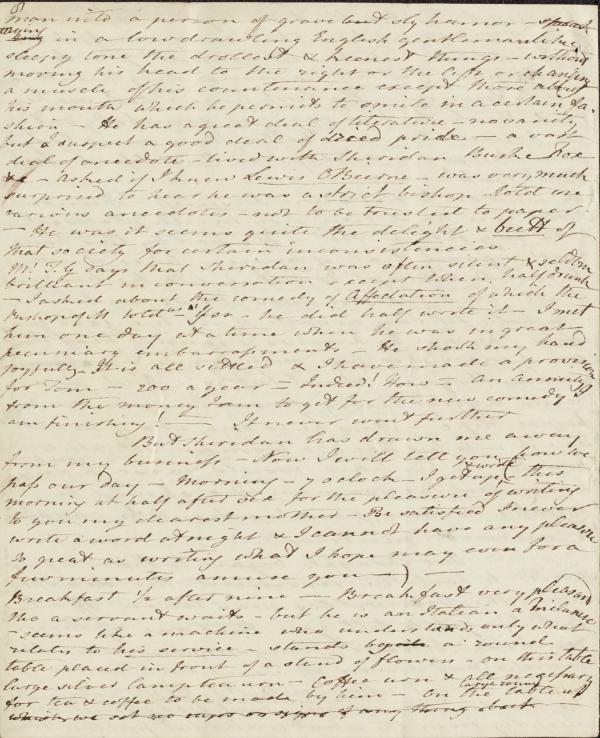 8
man into a person of grave but sly humor -
saying in a low drawling English gentlemanlike,
sleepy tone the drollest & keenest things - without
moving his head to the right or the left, or changing
a muscle of his countenance except those about
his mouth which he permits to smile in a certain fa-
shion - He has a great deal of literature - no vanity
but I suspect a good deal of dried pride - a vast
deal of anecdote - lived with Sheridan Burke Fox
&c - asked if I knew Lewis O'Beirne - was very much
surprised to hear he was a strict bishop - told me
various anecdotes - not to be trusted to paper
- He was it seems quite the delight & butt of
that society for certain inconsistencies
Mr. T. G says that Sheridan was often silent & seldom
brilliant in conversation except when half drunk
- I asked about the comedy of Affectation of which the
Bishop of M told us "Yes - he did half write it - I met
him one day at a time when he was in great
pecuniary embarrassments - He shook my hand
joyfully - It is all settled & I have made a provision
for Tom - 200 a year - Indeed! How - An annuity
from the money I am to get for the new comedy I
am finishing! - It never went further
But Sheridan has drawn me away
from my business - Now I will tell you how we
pass our day - Morning - 7 o clock - I get up & write (this
morning at half after six for the pleasure of writing
to you my dearest mother - Be satisfied I never
write a word at night & I cannot have any pleasure
so great as writing what I hope may even for a
few minutes amuse you -) -
Breakfast 1/2 after nine - Breakfast very pleasant
tho a servant waits - but he is an Italian a Milanese
- seems like a machine who understands only what
relates to his service - stands a round
table placed in front of a stand of flowers - on this table
large silver lamp tea urn - coffee urn & all necessary
for tea & coffee to be made by him - on the large round table at
which we sit no cups or signs of any thing but